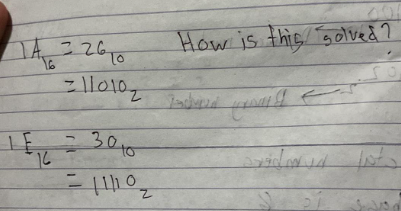 1A₁₆ = 26₁₀ How is this solved?
= 11010₂
1E₁₆ = 30₁₀
= 11110₂